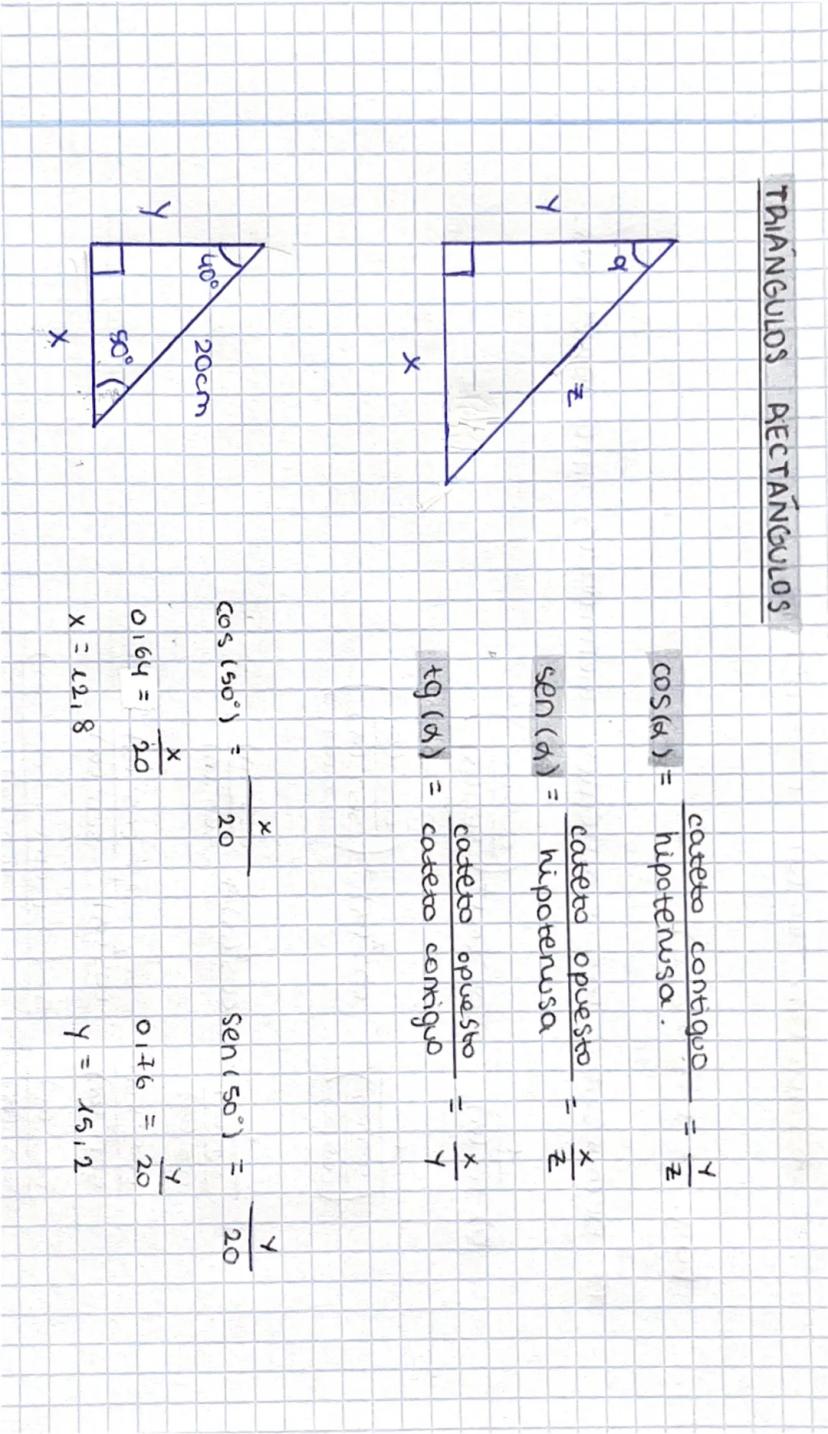 TRIÁNGULOS RECTÁNGULOS
Y
α
z
x
cos(α) = cateto contiguo / hipotenusa. = Y / z
sen(α) = cateto opuesto / hipotenusa = x / z
tg(α) = cateto opuesto / cateto contiguo = x / Y
Y
40°
20cm
50°
x
cos(50°) = x / 20
0,64 = x / 20
x = 12,8
sen(50°) = Y / 20
0,76 = Y / 20
Y = 15,2